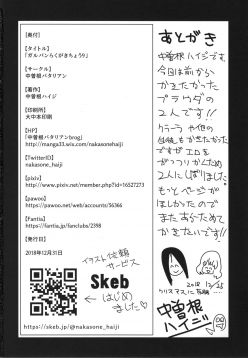 【奥付】
【タイトル】
「ガルパンらくがきちょう9」
【サークル】
「中曽根バタリアン」
【著作】
中曽根ハイジ
【印刷所】
大中本印刷
【HP】
「中曽根バタリアンbrog」
http://manga33.wixsite.com/nakasonehaiji
【TwitterID】
nakasone_haiji
【pixiv】
https://www.pixiv.net/member.php?id=16527273
【pawoo】
https://pawoo.net/web/accounts/56366
【Fantia】
https://fantia.jp/fanclubs/2398
【発行日】
2018年12月31日
イラスト依頼
サービス
Skeb
はじめ
ました
https://skeb.jp/@nakasone_haiji
あとがき
中曽根ハイジです。
今回は前から
かきたかった
プラウダの
2人です!!
クラーラや他の
ですがエロを
がっつりかくため
2人にしぼりました。
もっとページが
ほしかったので
またおうためて
かきたいです!!
2018 12/25
クリスマスに
中曽根
ハイジ